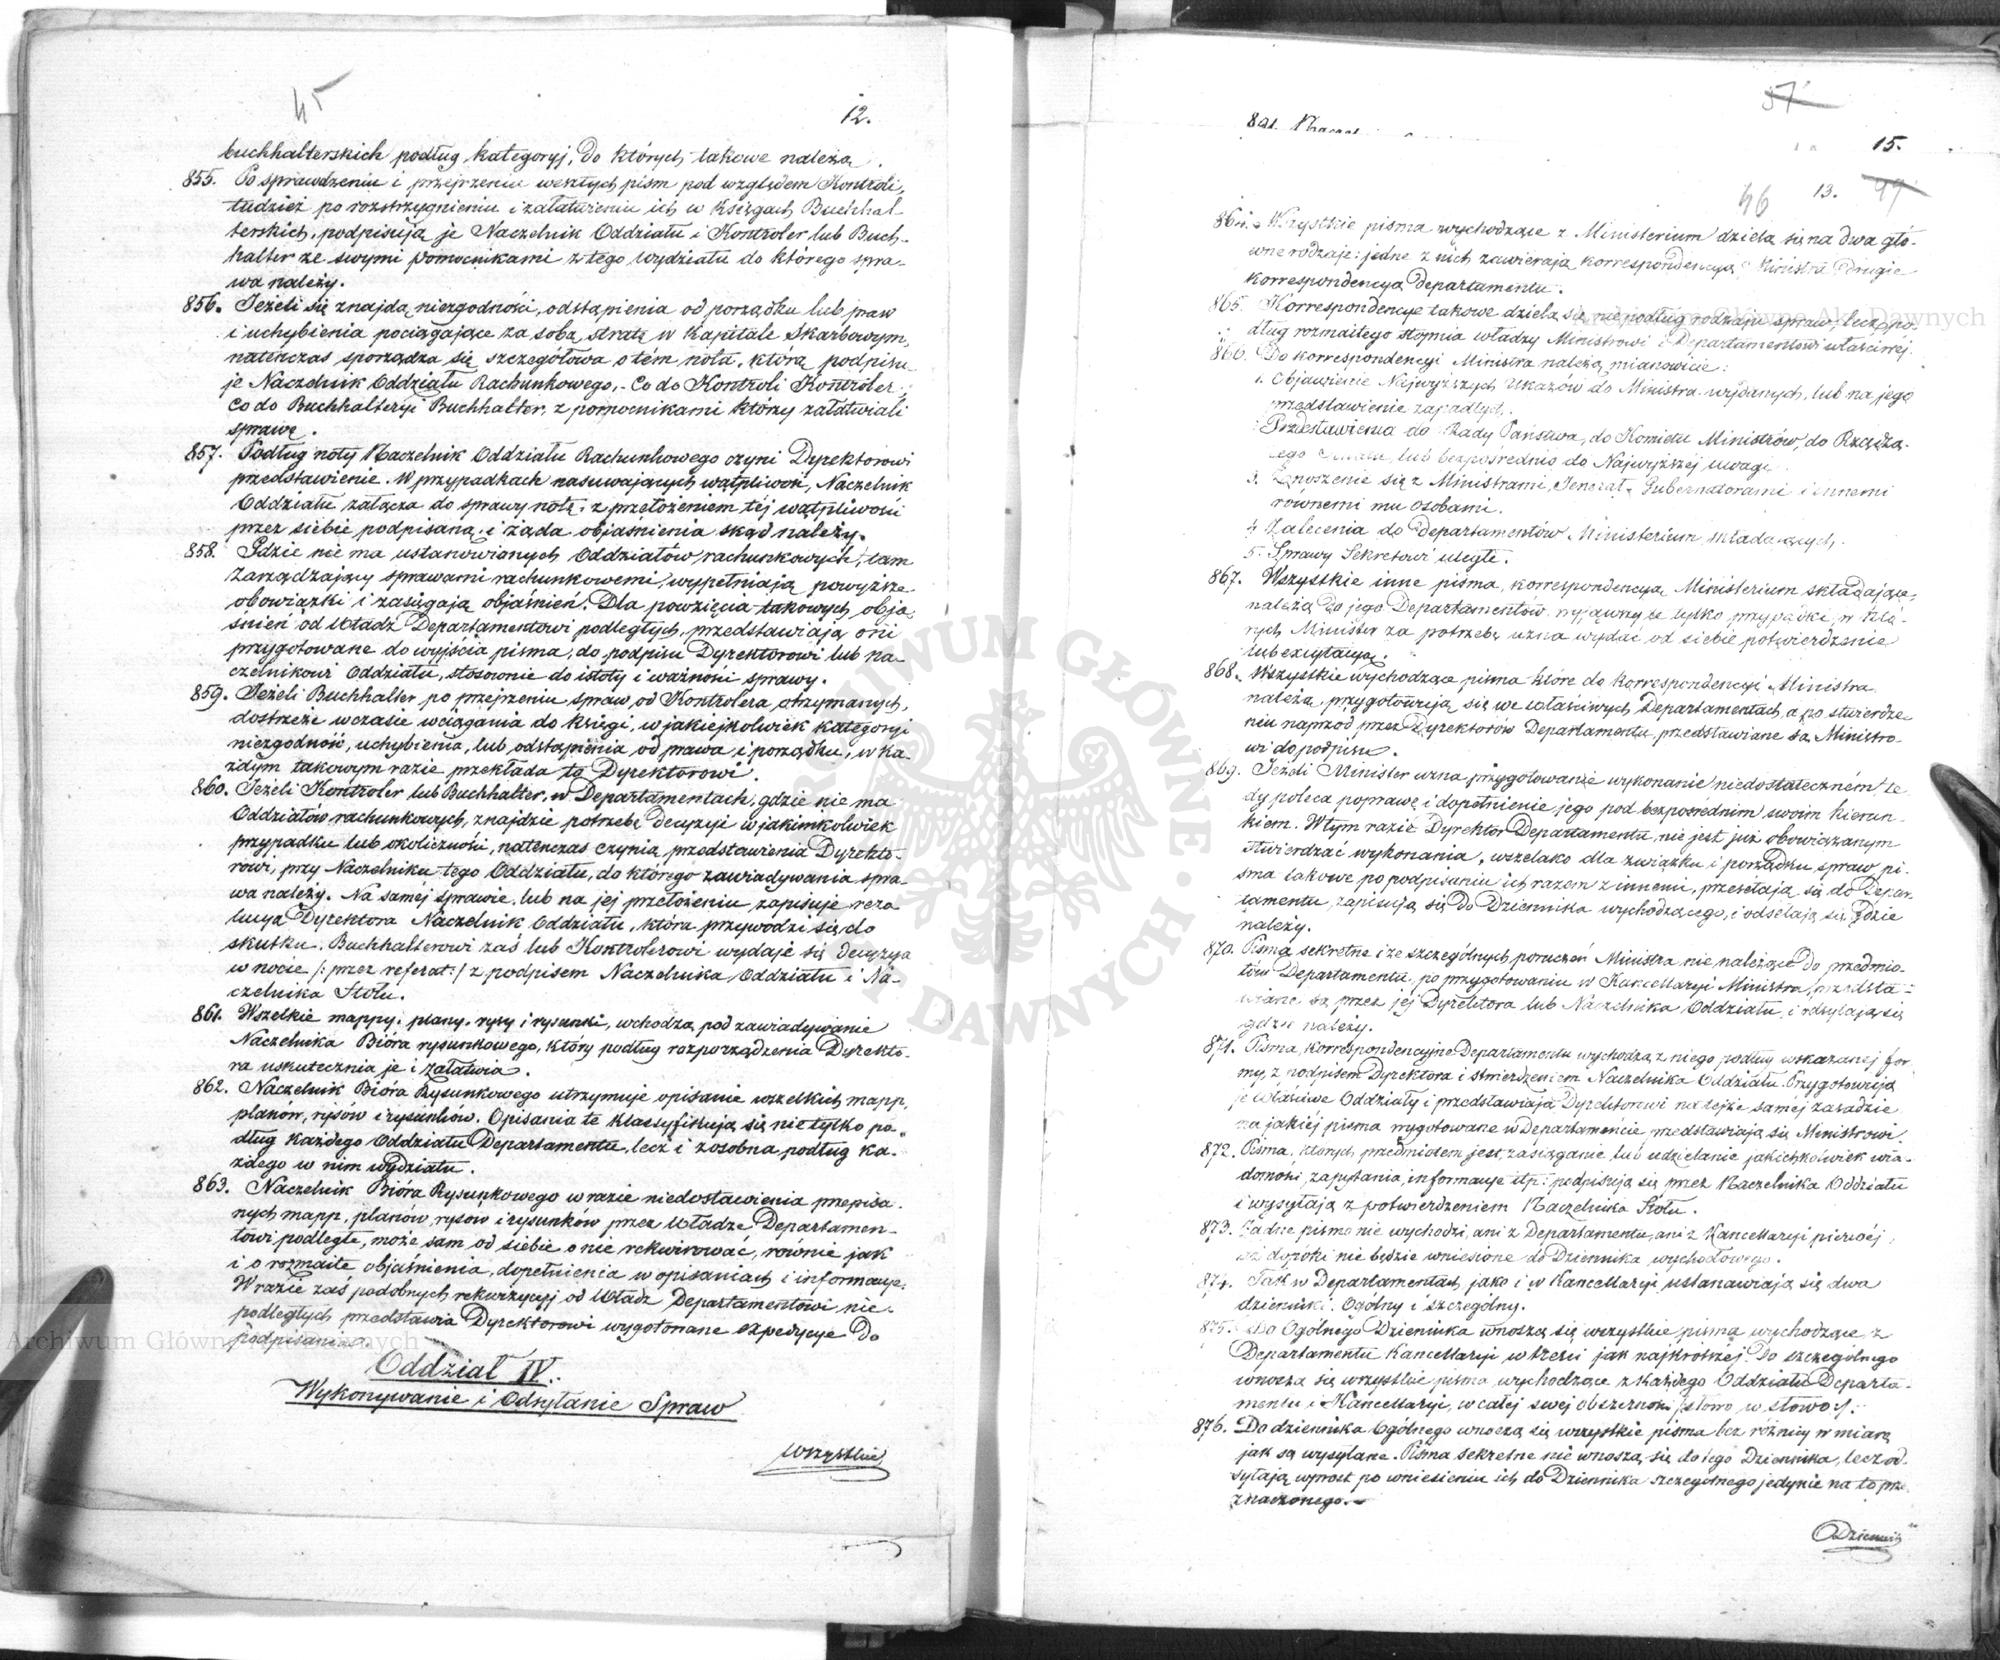 45
12.
buchhalterskich podług kategoryj, do których takowe należą.
855. Po sprawdzeniu i przejrzeniu weszłych pism pod względem Kontroli,
tudzież po rozstrzygnieniu i załatwieniu ich w Księgach Buchhal-
terskich, podpisują je Naczelnik Oddziału i Kontroler lub Buch-
halter ze swymi pomocnikami z tego wydziału do którego spra-
wa należy.
856. Jeżeli się znajdą niezgodności, odstąpienia od porządku lub praw
i uchybienia pociągające za sobą stratę w Kapitale Skarbowym,
natenczas sporządza się szczegółowa o tém nota, którą podpisu-
je Naczelnik Oddziału Rachunkowego, - Co do Kontroli Kontroler,
Co do Buchhalteryi Buchhalter, z pomocnikami którzy załatwiali
sprawę.
857. Podług noty Naczelnik Oddziału Rachunkowego czyni Dyrektorowi
przedstawienie. W przypadkach nasuwających wątpliwość, Naczelnik
Oddziału załącza do sprawy notę, z przełożeniem téj wątpliwości
przez siebie podpisaną, i żąda objaśnienia skąd należy.
858. Gdzie nie ma ustanowionych Oddziałów rachunkowych, tam
Zarządzający sprawami rachunkowemi, wypełniają powyższe
obowiązki i zasięgają objaśnień. Dla powzięcia takowych obja-
śnień od Władz Departamentowi podległych, przedstawiają oni
przygotowane do wyjścia pisma, do podpisu Dyrektorowi lub na-
czelnikowi Oddziału, stosownie do istoty i ważności sprawy.
859. Jeżeli Buchhalter po przejrzeniu spraw od Kontrolera otrzymanych,
dostrzeże wczasie wciągania do Księgi, w jakiejkolwiek kategoryi
niezgodność, uchybienia, lub odstąpienia od prawa i porządku, w ka-
żdym takowym razie przekłada to Dyrektorowi.
860. Jeżeli Kontroler lub Buchhalter, w Departamentach, gdzie nie ma
Oddziałów rachunkowych, znajdzie potrzebę decyzyi w jakimkolwiek
przypadku lub okoliczności, natenczas czynią przedstawienia Dyrekto-
rowi, przy Naczelniku tego Oddziału, do którego zawiadywania spra-
wa należy. Na samej sprawie, lub na jej przełożeniu zapisuje rezo
lucyą Dyrektora Naczelnik Oddziału, która przywodzi się do
skutku. Buchhalterowi zaś lub Kontrolerowi wydaje się decyzya
w nocie /: przez referat :/ z podpisem Naczelnika Oddziału i Na-
czelnika Stołu.
861. Wszelkie mappy, plany, rysy i rysunki, wchodzą pod zawiadywanie
Naczelnika Bióra rysunkowego, który podług rozporządzenia Dyrekto-
ra uskutecznia je i załatwia.
862. Naczelnik Bióra Rysunkowego utrzymuje opisanie wszelkich mapp,
planów, rysów i rysunków. Opisania te klassyfikują się nie tylko po-
dług każdego Oddziału Departamentu, lecz i zosobna podług ka-
żdego w nim wydziału.
863. Naczelnik Bióra Rysunkowego w razie niedostawienia przepisa-
nych mapp, planów, rysów i rysunków przez Władze Departamen-
towi podległe, może sam od siebie o nie rekwirować, równie jak
i o rozmaite objaśnienia, dopełnienia w opisaniach i informacye.
W razie zaś podobnych rekwizycyj od Władz Departamentowi nie-
podległych przedstawia Dyrektorowi wygotowane expedycye do
podpisania.
Oddział IV.
Wykonywanie i Odsyłanie Spraw
Wszystkie
57
15.
46 13.
864. Wszystkie pisma wychodzące z Ministerium dzielą się na dwa głó-
wne rodzaje: jedne z nich zawierają korrespondencyą Ministra drugie
korrespondencyą Departamentu.
865. Korrespondencye takowe dzielą się nie podług rodzaju spraw, lecz po-
dług rozmaitego stopnia władzy Ministrowi i Departamentowi właściwéj.
866. Do korrespondencyi Ministra należą mianowicie:
1. Objawienie Najwyższych Ukazów do Ministra wydanych, lub na jego
przedstawienie zapadłych.
Przedstawienia do Rady Państwa, do Komitetu Ministrów, do Rządzą-
cego Senatu, lub bezpośrednio do Najwyższéj uwagi
3. Znoszenie się z Ministrami, Generał-Gubernatorami i innemi
równemi mu osobami.
4. Zalecenia do Departamentów Ministerium składających.
5. Sprawy Sekretowi uległe.
867. Wszystkie inne pisma, korrespondencyą Ministerium składające,
należą do jego Departamentów, wyjąwszy te tylko przypadki, w któ-
rych Minister za potrzebę uzna wydać od siebie potwierdzenie
lub excytacyą.
868. Wszystkie wychodzące pisma które do korrespondencyi Ministra
należą, przygotowują się we właściwych Departamentach, a po stwierdze-
niu naprzód przez Dyrektorów Departamentu, przedstawiane są Ministro-
wi do podpisu.
869. Jeżeli Minister uzna przygotowanie wykonanie niedostateczném, te
dy poleca poprawę i dopełnienie jego pod bezpośrednim swoim kierun-
kiem. W tym razie Dyrektor Departamentu, nie jest już obowiązanym
stwierdzać wykonania, wszelako dla związku i porządku spraw, pi-
sma takowe po podpisaniu ich razem z innemi, przesełają się do Depar-
tamentu, zapisują się do Dziennika wychodzącego, i odsełają się gdzie
należy.
870. Pisma sekretne i ze szczególnych poruczeń Ministra nie należące do przedmio-
tów Departamentu, po przygotowaniu w Kancellaryi Ministra, przedsta-
wiane są przez jéj Dyrektora lub Naczelnika Oddziału, i odsyłają się
gdzie należy.
871. Pisma, korrespondencyjne Departamentu wychodzą z niego podług wskazanej for-
my, z podpisem Dyrektora i stwierdzeniem Naczelnika Oddziału. Przygotowują
je właściwe Oddziały i przedstawiają Dyrektorowi na tejże saméj zasadzie
na jakiéj pisma wygotowane w Departamencie przedstawiają się Ministrowi.
872. Pisma, których przedmiotem jest, zasięganie lub udzielanie jakichkolwiek wia-
domości, zapytania, informacye itp: podpisują się przez Naczelnika Oddziału
i wysyłają z potwierdzeniem Naczelnika Stołu.
873. Żadne pismo nie wychodzi, ani z Departamentu, ani z Kancellaryi pierwéj,
aż dopóki nie będzie wniesione do Dziennika wychodowego.
874. Tak w Departamentach, jako i w Kancellaryi, ustanawiają się dwa
dzienniki: Ogólny i szczególny.
875. Do Ogólnego Dziennika wnoszą się wszystkie pisma wychodzące, z
Departamentu Kancellaryi w treści jak najkrótszéj. Do szczególnego
wnoszą się wszystkie pisma, wychodzące z każdego Oddziału Departa-
mentu i Kancellaryi, w całej swej obszerności /:słowo w słowo:/.
876. Do dziennika Ogólnego wnoszą się wszystkie pisma bez różnicy w miarę
jak są wysyłane. Pisma sekretne nie wnoszą się do tego Dziennika, lecz od-
syłają wprost po wniesieniu ich do Dziennika szczególnego jedynie na to prze-
znaczonego.
Dziennik
Archiwum Główne Akt Dawnych
ARCHIWUM GŁÓWNE AKT DAWNYCH